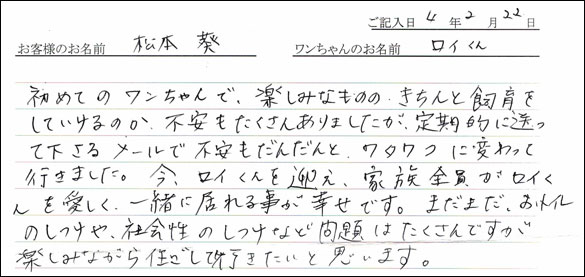 ご記入日 4 年 2 月 22 日
お客様のお名前 松本 葵 ワンちゃんのお名前 ロイくん
初めてのワンちゃんで、楽しみなものの、きちんと飼育を
していけるのか、不安もたくさんありましたが、定期的に送っ
て下さるメールで不安もだんだんと、ワクワクに変わって
行きました。今、ロイくんを迎え、家族全員がロイく
んを愛しく、一緒に居れる事が幸せです。まだまだ、おトイレ
のしつけや、社会性のしつけなど問題はたくさんですが
楽しみながら過ごして行きたいと思います。